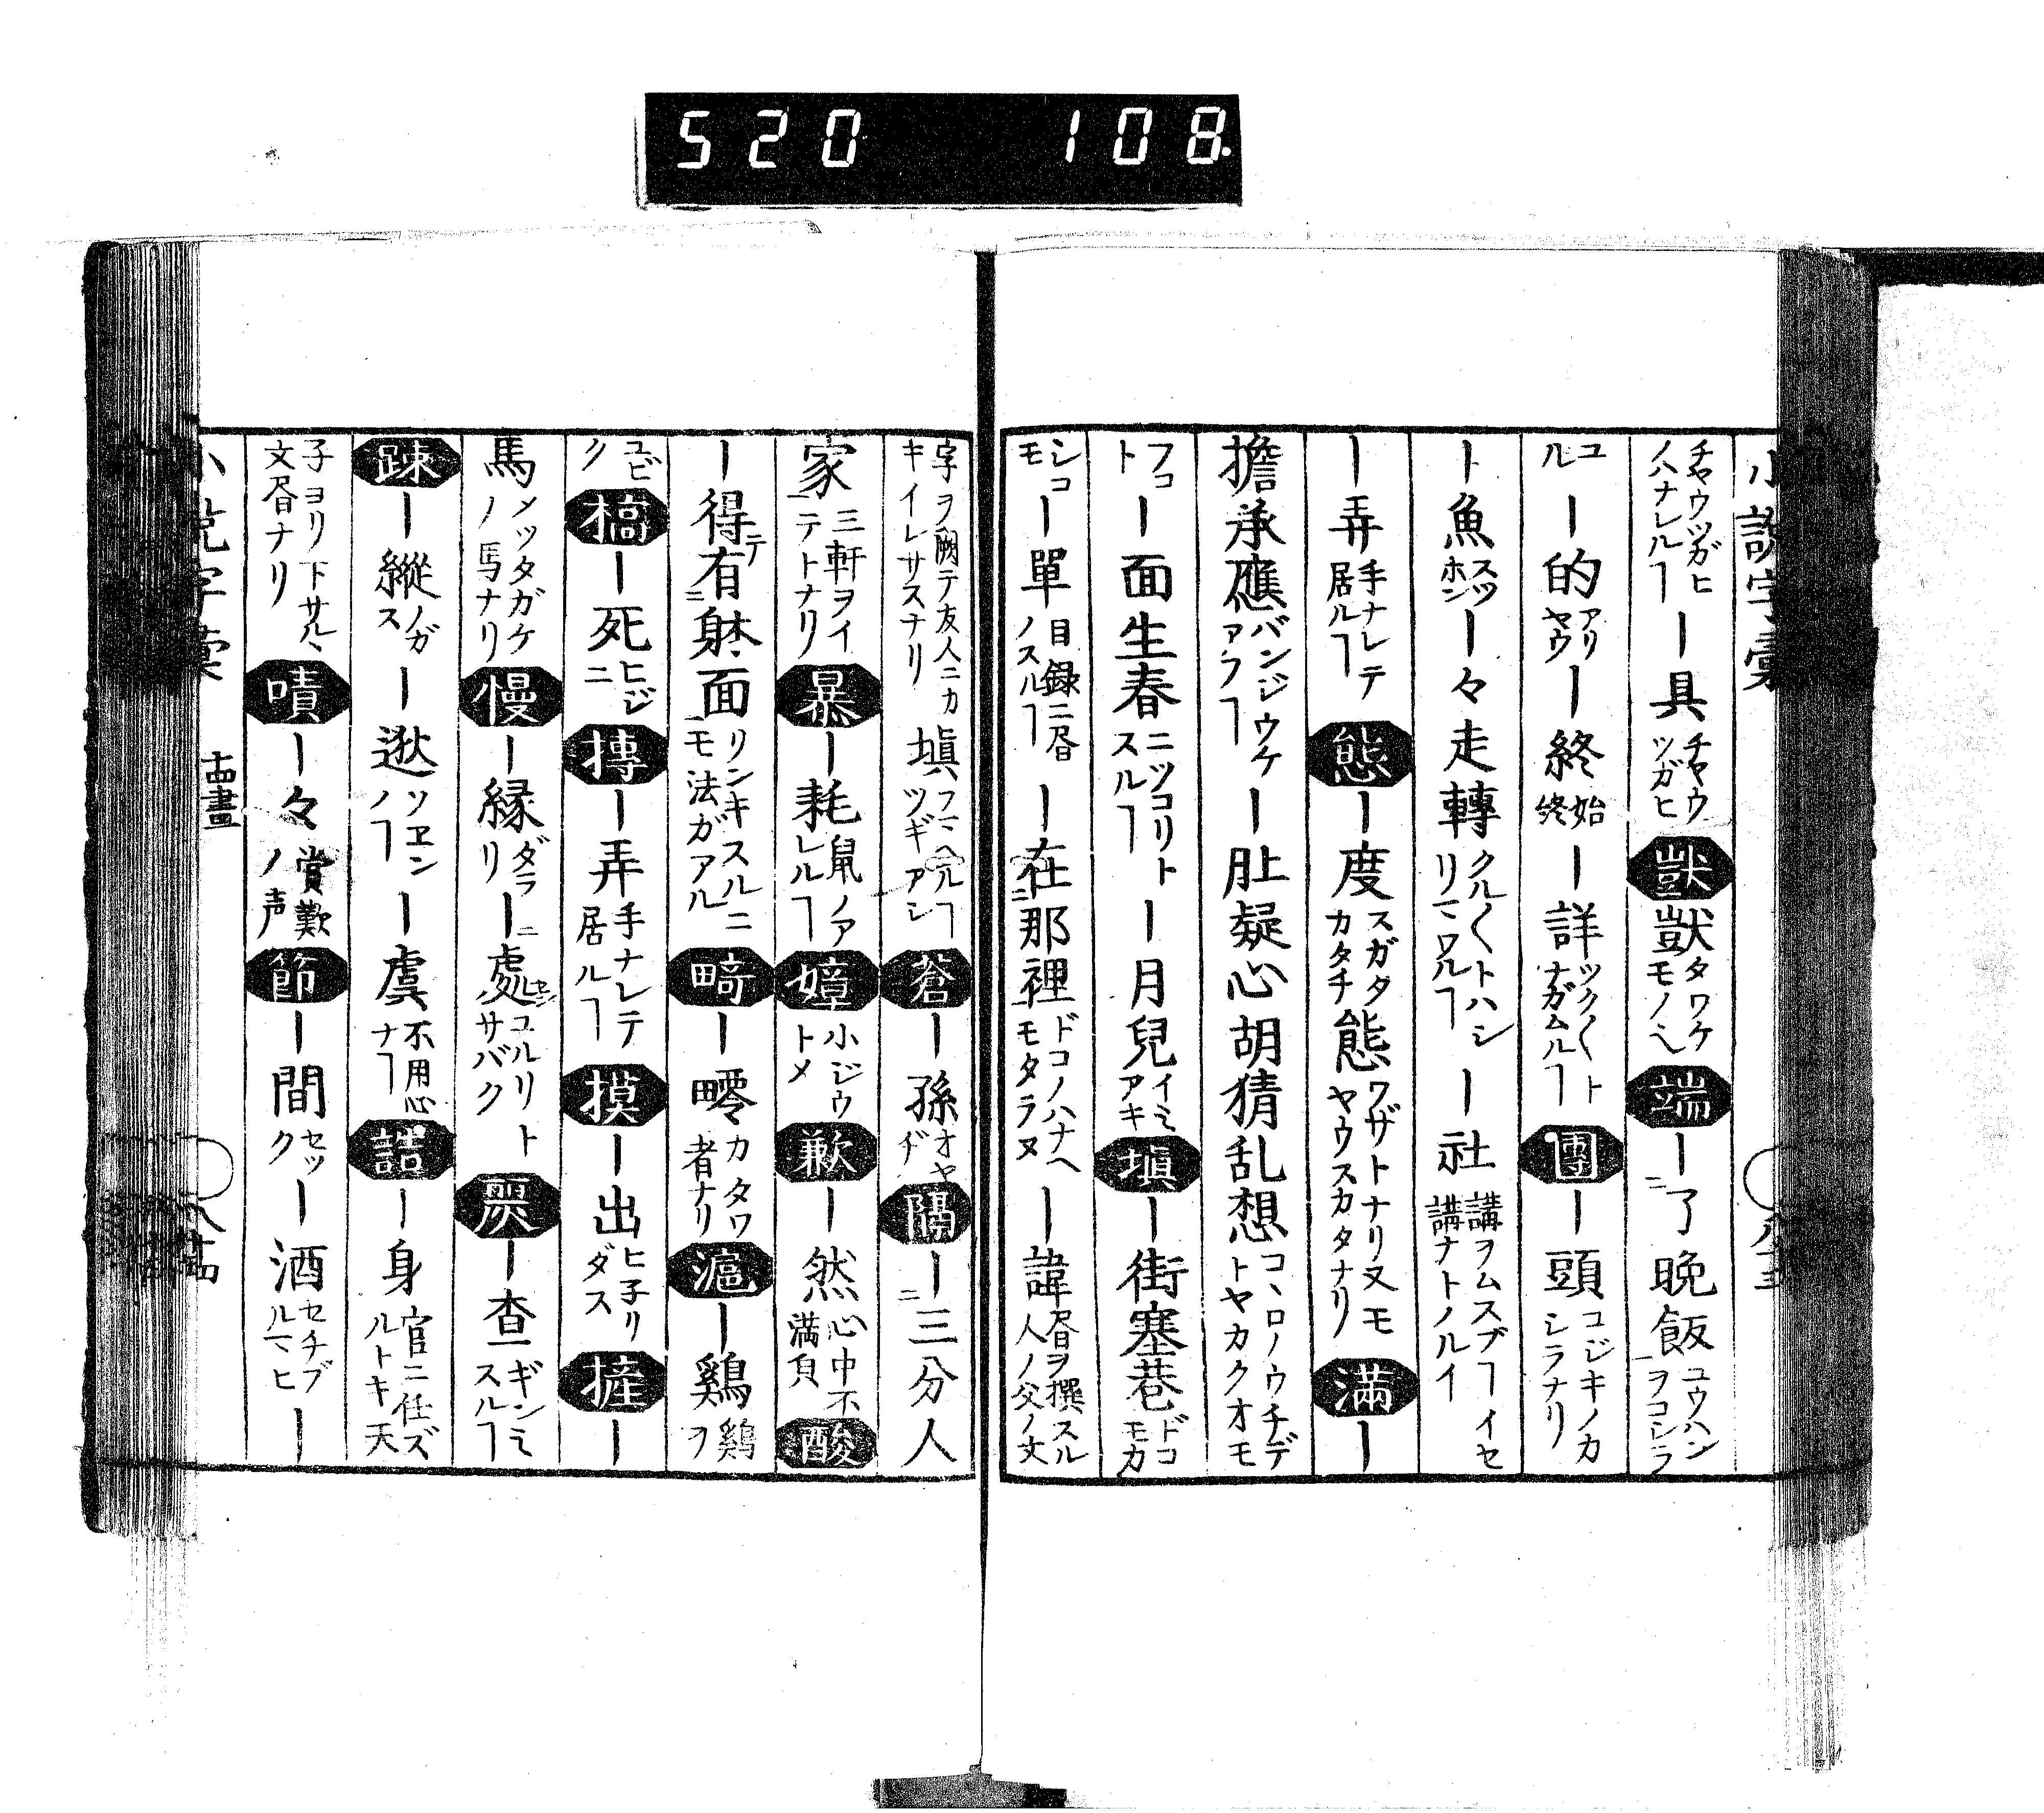 520 108.
小説字彙
チャウツガヒノハナレルヿ ー具 チヤウツガヒ 獃 獃 タワケモノ 端 ー了晩飯 ユウハンヲコシラ
ユル ー的 アリヤウ ー終 始終 ー詳 ツク〱トナガムルヿ 團 ー頭 コジキノカシラナリ
ー魚 スツホン ー々走轉 クル〱トハシリマワルヿ ー社 講ヲムスブヿイセ講ナトノルイ
ー弄 手ナレテ居ルヿ 態 ー度 スガタカタチ 態 ワザトナリ又モヤウスカタナリ 滿 ー
擔承應 バンジウケアフヿ ー肚疑心胡猜乱想 コヽロノウチデトヤカクオモ
フコト ー面生春 ニツコリトスルヿ ー月兒 イミアキ 塡 ー街塞巷 ドコモカ
シコモ ー單 目録ニ昏ノスルヿ ー在那裡 ドコノハナヘモタラヌ ー諱 昏ヲ撰スル人ノ父ノ文
字ヲ闕テ友人ニカキイレサスナリ 塡 フマヘルヿツギアシ 蒼 ー孫 オヤヂ 隔 ー三分人
家 三軒ヲイテトナリ 暴 ー耗 鼠ノアレルヿ 嫜 小ジウトメ 歉 ー然 心中不満負 酸
ー得有躰面 リンキスルニモ法ガアル 畸 ー零 カタワ者ナリ 滬 ー鷄 鷄ヲ
ユビク 槁 ー死 ヒジニ 摶 ー弄 手ナレテ居ルヿ 摸 ー出 ヒ子リダス 摧 ー
馬 メッタガケノ馬ナリ 慢 ー縁 ダラリ ー處 ユルリトサバク 𦋺 ー査 ギンミスルヿ
踈 ー縱 ノガス ー逖 ソヱンノヿ ー虞 不用心ナヿ 詰 ー身 官ニ任ズルトキ天
子ヨリ下サルヽ文昏ナリ 嘖 ー々 賞歎ノ声 節 ー間 セック ー酒 セチブルマヒ ー
小説字彙 十四畫